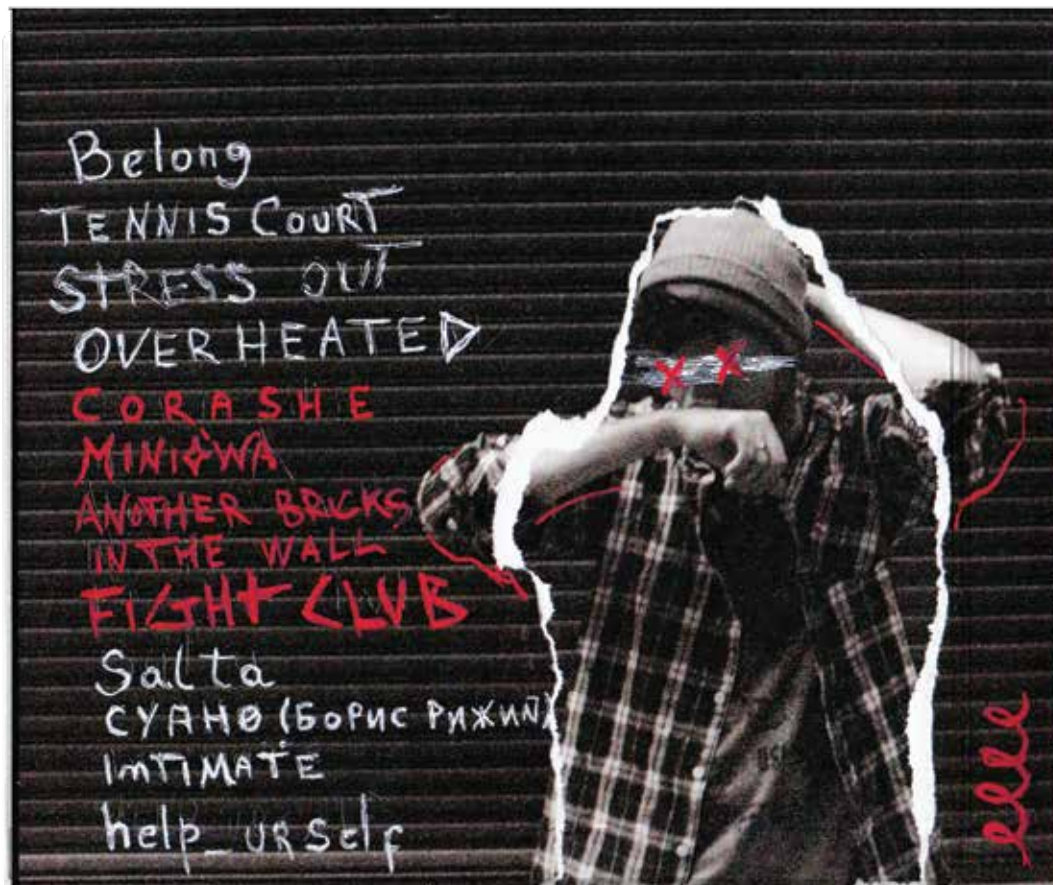 Belong
TENNIS COURT
STRESS OUT
OVERHEATED
CORASHE
MINIOWA
ANOTHER BRICKS
IN THE WALL
FIGHT CLUB
Salta
СУАНО (БОРИС РИЖИЙ)
INTIMATE
help_urself